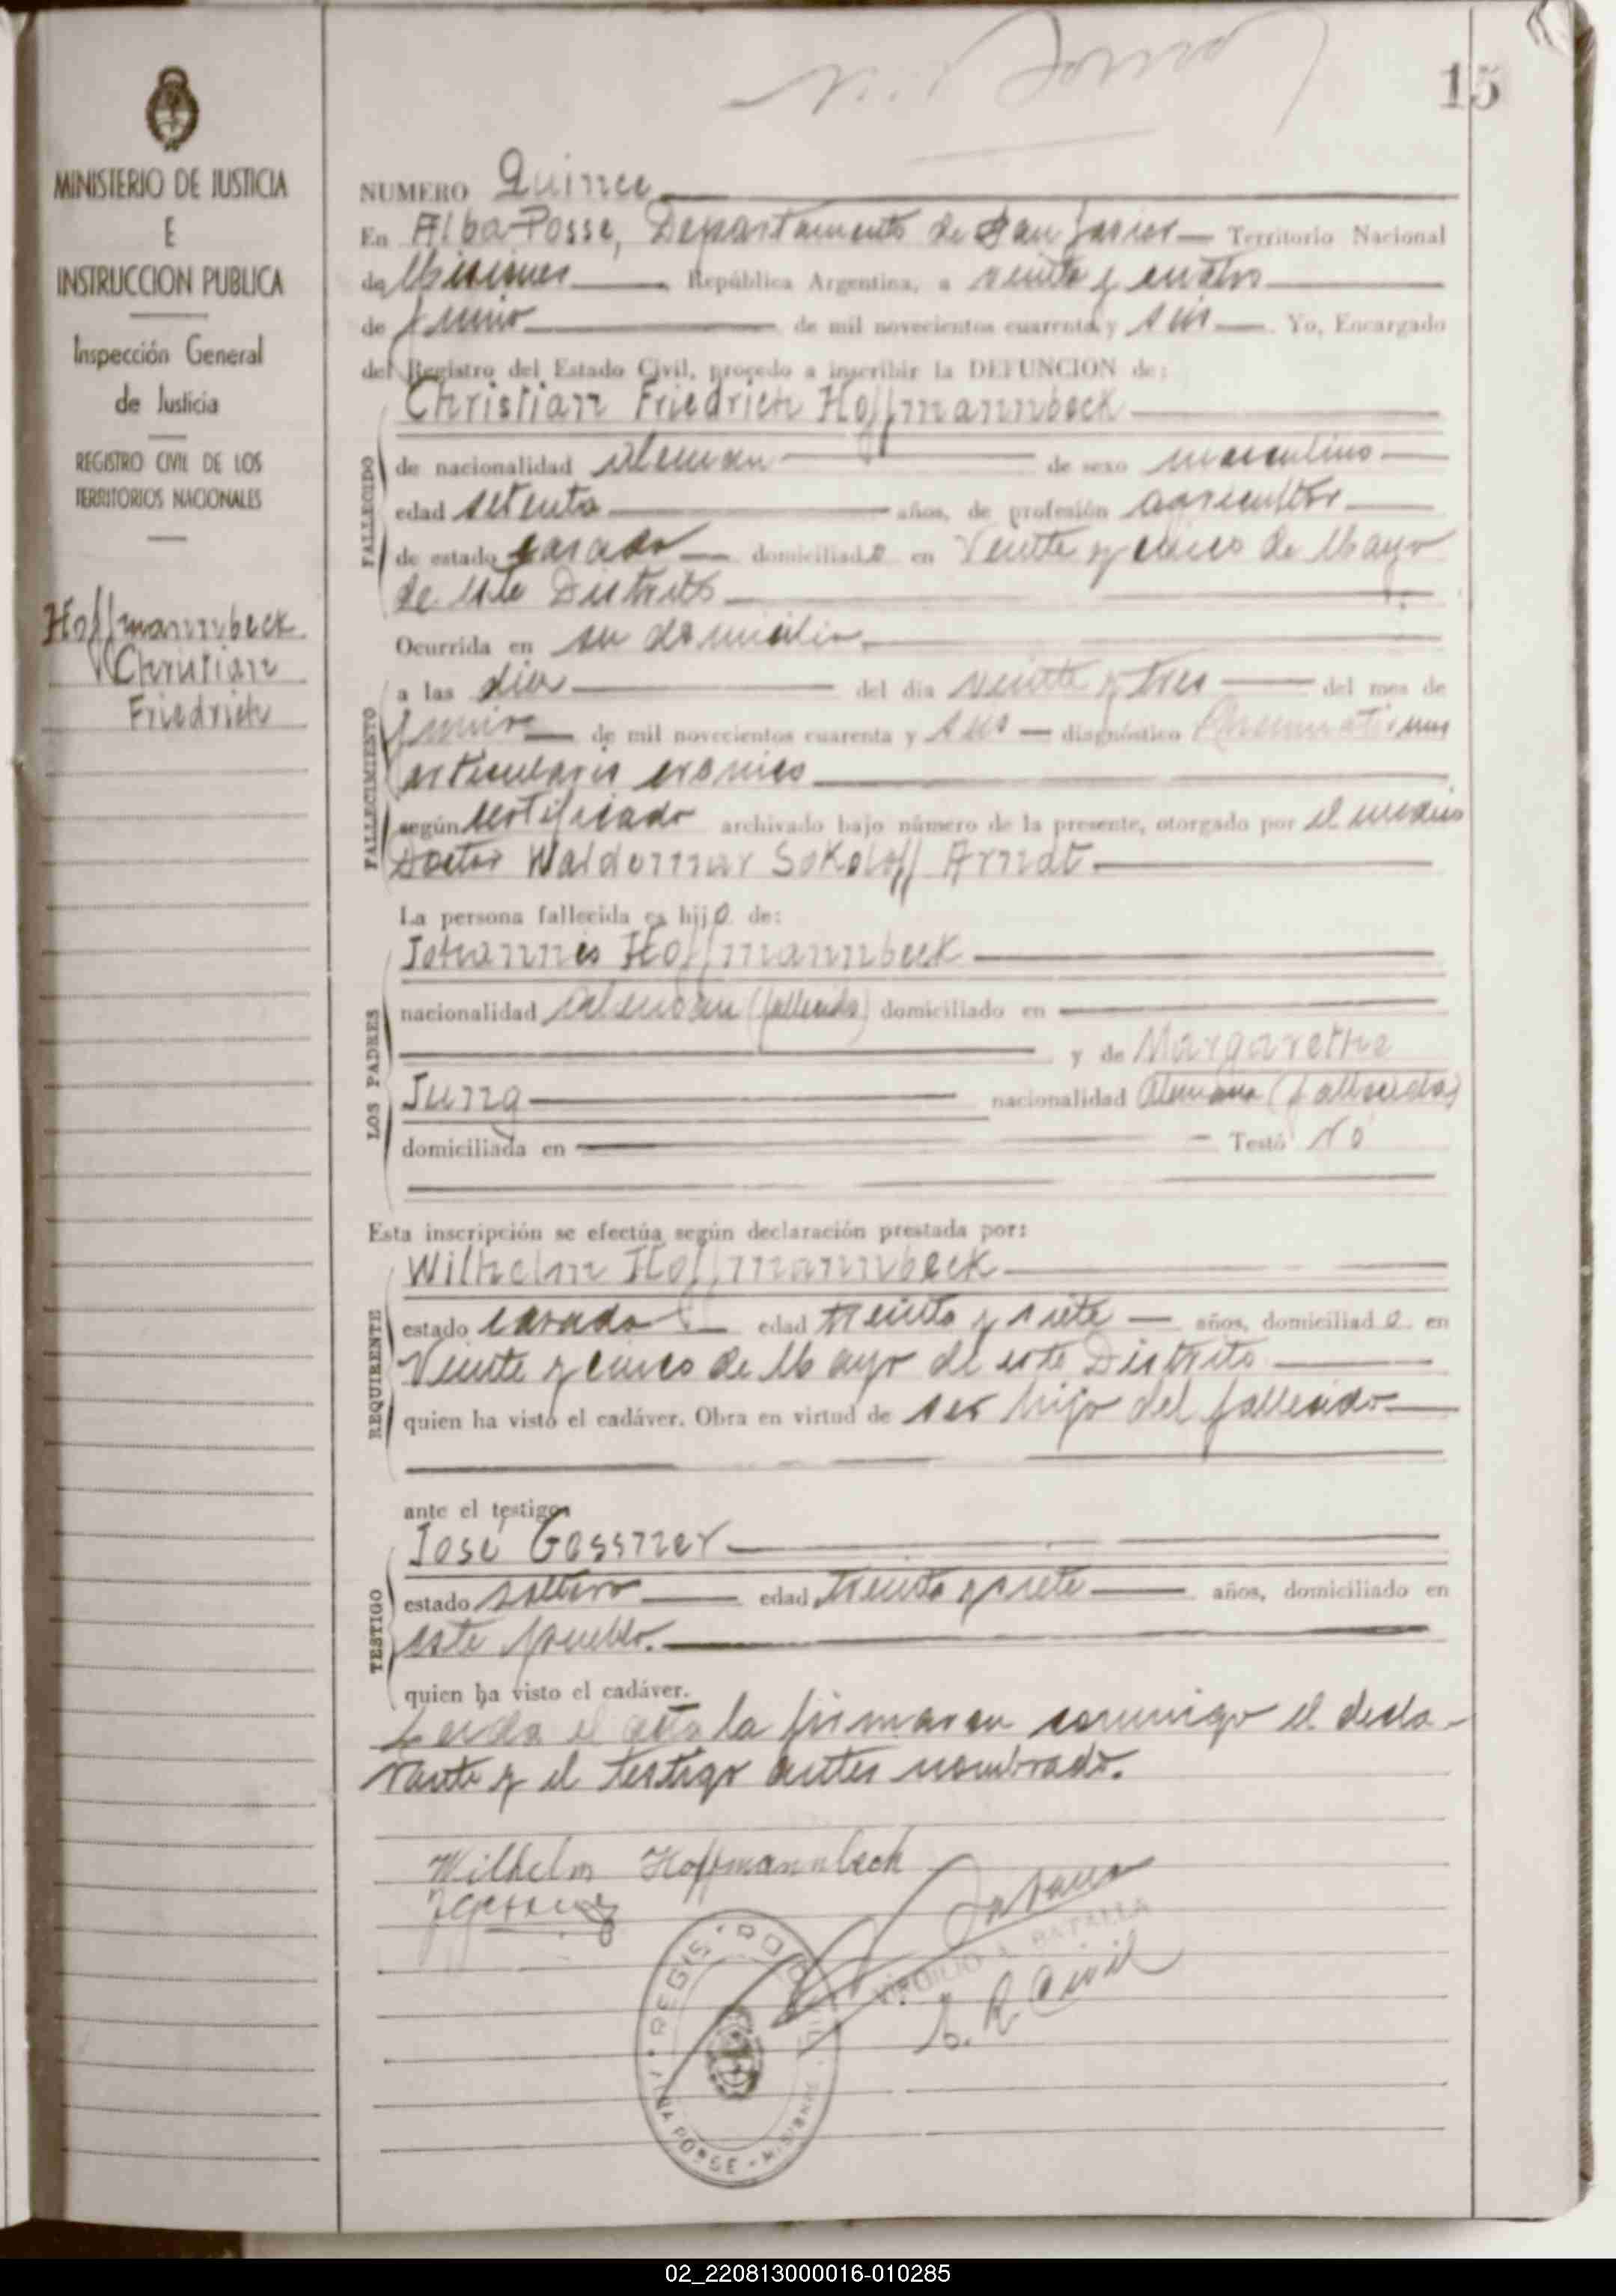 15
MINISTERIO DE JUSTICIA
E
INSTRUCCION PUBLICA
Inspección General
de Justicia
REGISTRO CIVIL DE LOS
TERRITORIOS NACIONALES
Hoffmannbeck
Christian
Friedrich
NUMERO Quince
En Alba-Posse, Departamento de San Javier Territorio Nacional
de Misiones República Argentina, a veinte y cuatro
de junio de mil novecientos cuarenta y seis Yo, Encargado
del Registro del Estado Civil, procedo a inscribir la DEFUNCION de:
FALLECIDO
Christian Friedrich Hoffmannbeck
de nacionalidad aleman de sexo masculino
edad setenta años, de profesión agricultor
de estado casado domiciliado en Veinte y cinco de Mayo
de este Distrito
Ocurrida en su domicilio
FALLECIMIENTO
a las diez del dia veinte y tres del mes de
junio de mil novecientos cuarenta y seis diagnóstico
articularis cronico
según certificado archivado bajo número de la presente, otorgado por el medico
Doctor Waldemar Sokoloff Arndt.
La persona fallecida es hijo de:
LOS PADRES
Johannes Hoffmannbeck
nacionalidad aleman (fallecido) domiciliado en
y de Margarethe
Jung nacionalidad Alemana (fallecida)
domiciliada en Testó No
Esta inscripción se efectúa según declaración prestada por:
REQUIRENTE
Wilhelm Hoffmannbeck
estado casado edad treinta y siete años, domiciliado en
Veinte y cinco de Mayo de este Distrito
quien ha visto el cadáver. Obra en virtud de ser hijo del fallecido
ante el testigo
TESTIGO
José Gessner
estado soltero edad treinta y siete años, domiciliado en
este pueblo.
quien ha visto el cadáver.
Leida el acta la firmaron conmigo el decla-
rante y el testigo antes nombrado.
Wilhelm Hoffmannbeck
VIRGILIO A. BATALLA
E. R. Civil
REGISTRO CIVIL
ALBA POSSE - MISIONES
02_220813000016-010285